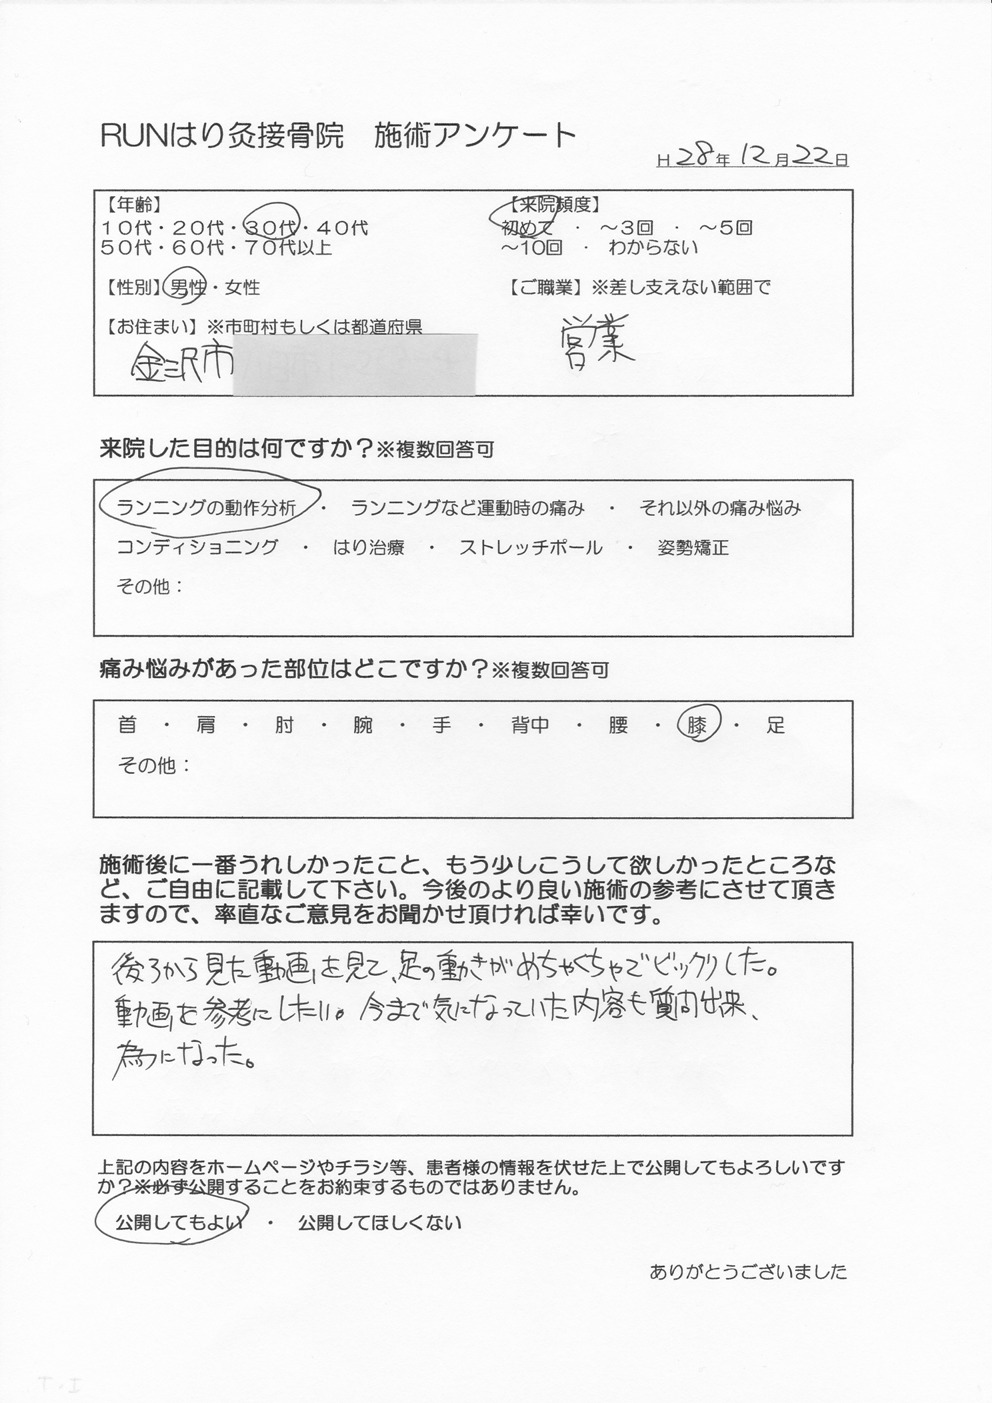 RUNはり灸接骨院　施術アンケート
H 28年 12月 22日
【年齢】
10代・20代・30代・40代
50代・60代・70代以上
【来院頻度】
初めて　・　～3回　・　～5回
～10回　・　わからない
【性別】男性・女性
【ご職業】※差し支えない範囲で
営業
【お住まい】※市町村もしくは都道府県
金沢市
来院した目的は何ですか？※複数回答可
ランニングの動作分析　・　ランニングなど運動時の痛み　・　それ以外の痛み悩み
コンディショニング　・　はり治療　・　ストレッチポール　・　姿勢矯正
その他：
痛み悩みがあった部位はどこですか？※複数回答可
首　・　肩　・　肘　・　腕　・　手　・　背中　・　腰　・　膝　・　足
その他：
施術後に一番うれしかったこと、もう少しこうして欲しかったところな
ど、ご自由に記載して下さい。今後のより良い施術の参考にさせて頂き
ますので、率直なご意見をお聞かせ頂ければ幸いです。
後ろから見た動画を見て、足の動きがめちゃくちゃでビックリした。
動画を参考にしたい。今まで気になっていた内容も質問出来、
為になった。
上記の内容をホームページやチラシ等、患者様の情報を伏せた上で公開してもよろしいです
か？※必ず公開することをお約束するものではありません。
公開してもよい　・　公開してほしくない
ありがとうございました